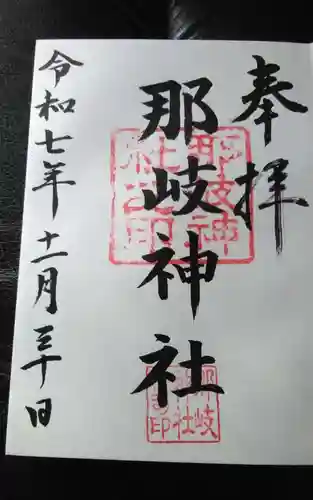 奉拝
那岐神社
令和七年十一月三十日
那岐神
社之印
那岐
神社